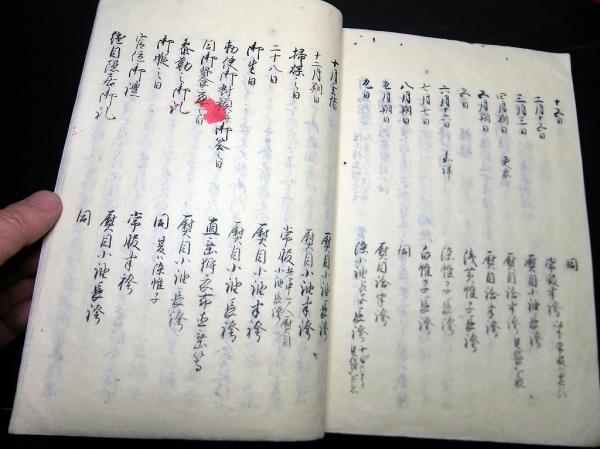 十五日 同
二月十五日 常服半袴
三月三日 熨目小池長袴
四月朔日 更衣 熨目沿半袴
五月朔日 熨目沿半袴
五日 浅黄帷子長袴
六月十六日 嘉祥 染帷子長袴
七月七日 白帷子長袴
八月朔日 同
九月朔日 熨目沿半袴
九日 染小池長袴
十月玄猪 熨目小池長袴
十二月朔日 熨目小池半袴
掃煤之日 常服
二十八日 熨目小池半袴
御生日 熨目小池長袴
勅使御対顔御答之日 直垂狩衣布直垂等
同御饗応之日 熨目小池長袴
参勤之御礼 同 夏ハ染帷子
御帳之日 常服半袴
官位御礼 熨目小池長袴
継目隠居御礼 同